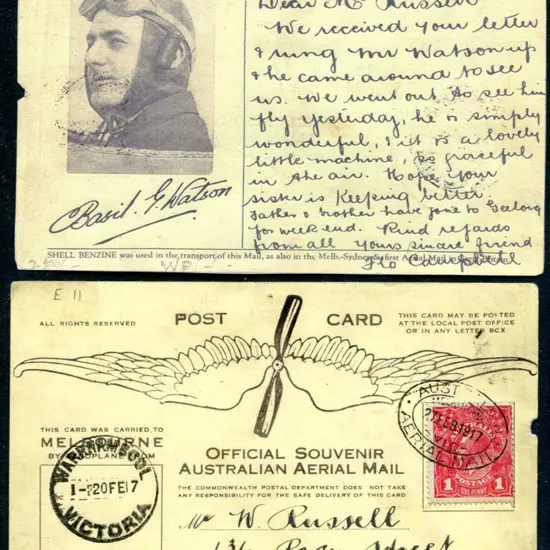 Dear Mr Russell
We received your letter
& rung Mr Watson up
& he came around to see
us. We went out to see him
fly yesterday, he is simply
wonderful, & it is a lovely
little machine, so graceful
in the air. Hope your
sister is keeping better.
Father & brother have gone to Geelong
for week end. Kind regards
from all yours sincere friend
Flo Campbell
Basil G. Watson
SHELL BENZINE was used in the transport of this Mail, as also in the Melb.-Sydney first Aerial Mail
E 11
ALL RIGHTS RESERVED
POST CARD
THIS CARD MAY BE POSTED
AT THE LOCAL POST OFFICE
OR IN ANY LETTER BOX
THIS CARD WAS CARRIED TO
MELBOURNE
BY AEROPLANE FROM
WARRNAMBOOL
1-P 20 FE 17
VICTORIA
OFFICIAL SOUVENIR
AUSTRALIAN AERIAL MAIL
THE COMMONWEALTH POSTAL DEPARTMENT DOES NOT TAKE
ANY RESPONSIBILITY FOR THE SAFE DELIVERY OF THIS CARD
AUST
27 FEB 1917
VIC
AERIAL MAIL
AUSTRALIA
POSTAGE
1 ONE PENNY 1
Mr W. Russell
Street